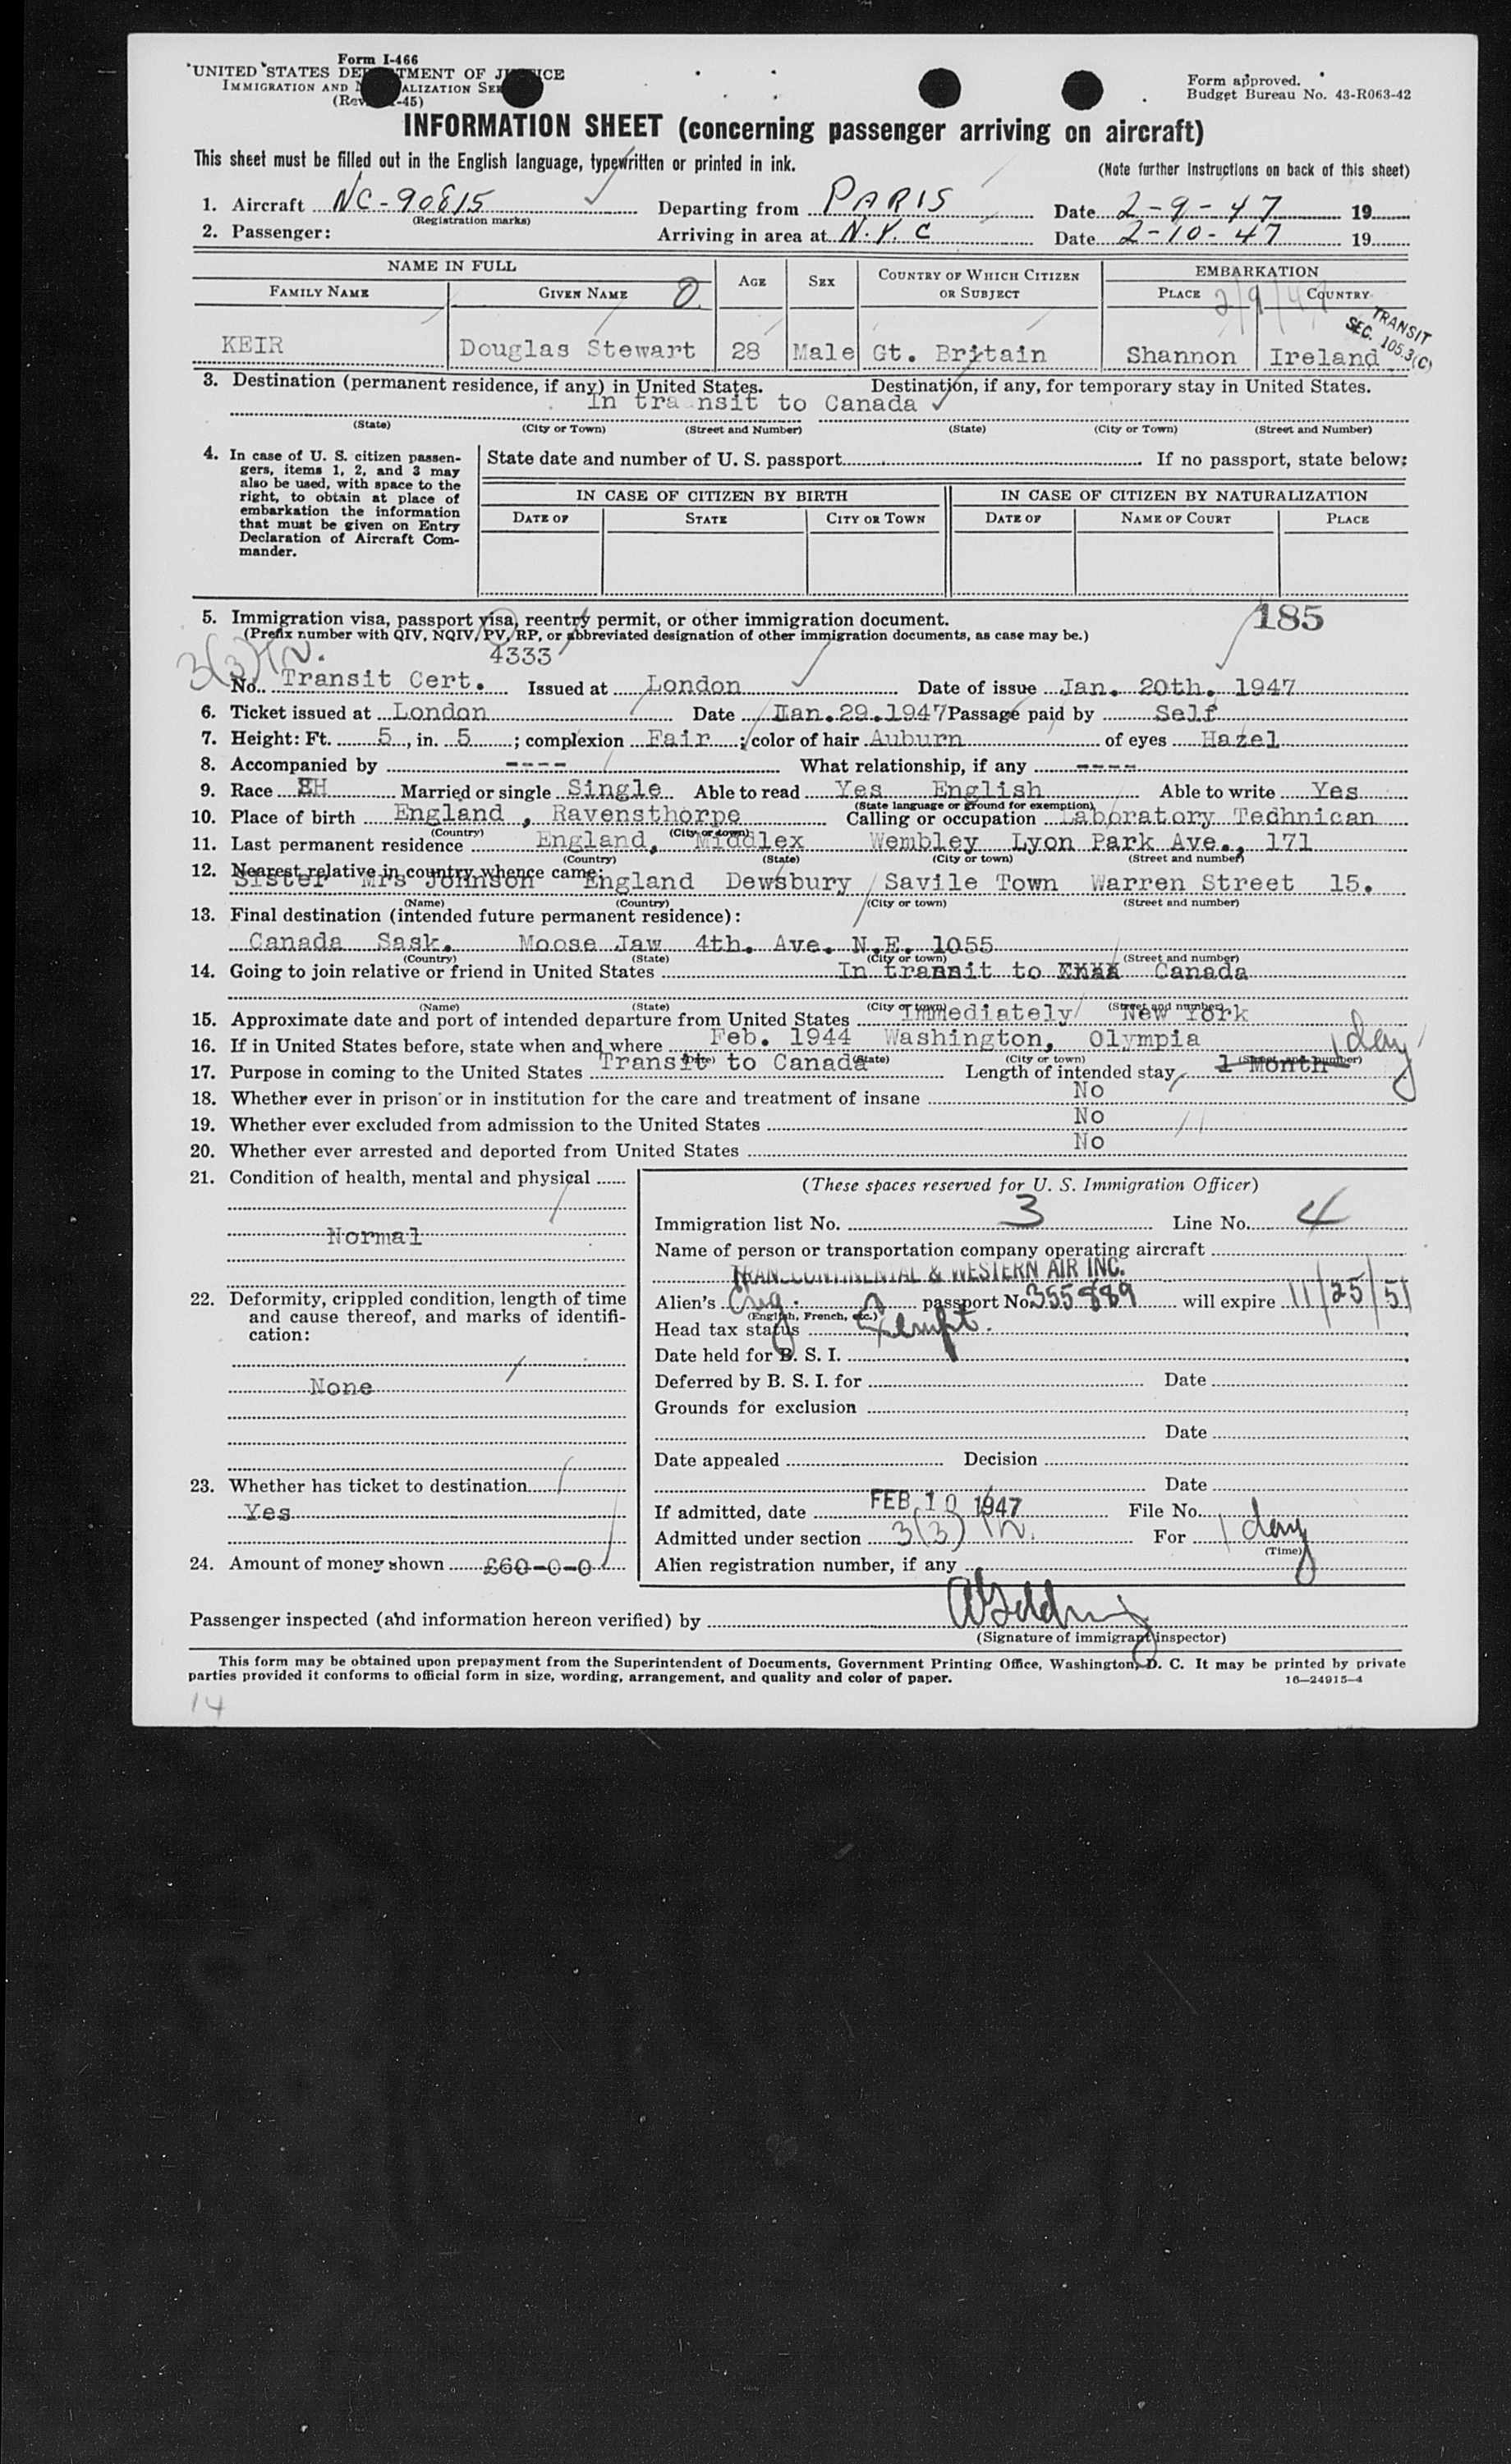 Form I-466
UNITED STATES DEPARTMENT OF JUSTICE
IMMIGRATION AND NATURALIZATION SERVICE
(Rev. -45)
Form approved.
Budget Bureau No. 43-R063-42
INFORMATION SHEET (concerning passenger arriving on aircraft)
This sheet must be filled out in the English language, typewritten or printed in ink.
(Note further instructions on back of this sheet)
1. Aircraft NC-90815 Departing from PARIS Date 2-9-47 19
(Registration marks)
2. Passenger: Arriving in area at N.Y.C Date 2-10-47 19
NAME IN FULL AGE SEX COUNTRY OF WHICH CITIZEN OR SUBJECT EMBARKATION
FAMILY NAME GIVEN NAME PLACE COUNTRY
2/9/47
TRANSIT
SEC. 105.3(C)
KEIR Douglas Stewart 28 Male Gt. Britain Shannon Ireland
3. Destination (permanent residence, if any) in United States. Destination, if any, for temporary stay in United States.
In transit to Canada
(State) (City or Town) (Street and Number) (State) (City or Town) (Street and Number)
4. In case of U. S. citizen passengers, items 1, 2, and 3 may also be used, with space to the right, to obtain at place of embarkation the information that must be given on Entry Declaration of Aircraft Commander.
State date and number of U. S. passport If no passport, state below:
IN CASE OF CITIZEN BY BIRTH IN CASE OF CITIZEN BY NATURALIZATION
DATE OF STATE CITY OR TOWN DATE OF NAME OF COURT PLACE
5. Immigration visa, passport visa, reentry permit, or other immigration document. 185
(Prefix number with QIV, NQIV, PV, RP, or abbreviated designation of other immigration documents, as case may be.)
3(3) 4333
No. Transit Cert. Issued at London Date of issue Jan. 20th. 1947
6. Ticket issued at London Date Jan.29.1947 Passage paid by Self
7. Height: Ft. 5, in. 5; complexion Fair; color of hair Auburn of eyes Hazel
8. Accompanied by ---- What relationship, if any ----
9. Race EH Married or single Single Able to read Yes English Able to write Yes
(State language or ground for exemption)
10. Place of birth England, Ravensthorpe Calling or occupation Laboratory Technican
(Country) (City or town)
11. Last permanent residence England, Middlex Wembley Lyon Park Ave., 171
(Country) (State) (City or town) (Street and number)
12. Nearest relative in country whence came:
Sister Mrs Johnson England Dewsbury Savile Town Warren Street 15.
(Name) (Country) (City or town) (Street and number)
13. Final destination (intended future permanent residence):
Canada Sask. Moose Jaw 4th. Ave. N.E. 1055
(Country) (State) (City or town) (Street and number)
14. Going to join relative or friend in United States In transit to Canada
(Name) (State) (City or town) (Street and number)
15. Approximate date and port of intended departure from United States Immediately New York
16. If in United States before, state when and where Feb. 1944 Washington, Olympia
(Date) (State) (City or town) (Street and number)
17. Purpose in coming to the United States Transit to Canada Length of intended stay 1 Month 1 day
18. Whether ever in prison or in institution for the care and treatment of insane No
19. Whether ever excluded from admission to the United States No
20. Whether ever arrested and deported from United States No
21. Condition of health, mental and physical
Normal
22. Deformity, crippled condition, length of time and cause thereof, and marks of identification:
None
23. Whether has ticket to destination
Yes
24. Amount of money shown £60-0-0
(These spaces reserved for U. S. Immigration Officer)
Immigration list No. 3 Line No. 4
Name of person or transportation company operating aircraft
TRANSCONTINENTAL & WESTERN AIR INC.
Alien's passport No. 355889 will expire 11/25/51
(English, French, etc.)
Head tax status Exempt.
Date held for B. S. I.
Deferred by B. S. I. for Date
Grounds for exclusion
Date
Date appealed Decision
Date
If admitted, date FEB 10 1947 File No.
Admitted under section 3(3) For 1 day
(Time)
Alien registration number, if any
Passenger inspected (and information hereon verified) by
(Signature of immigrant inspector)
This form may be obtained upon prepayment from the Superintendent of Documents, Government Printing Office, Washington, D. C. It may be printed by private
parties provided it conforms to official form in size, wording, arrangement, and quality and color of paper.
16—24915-4
14